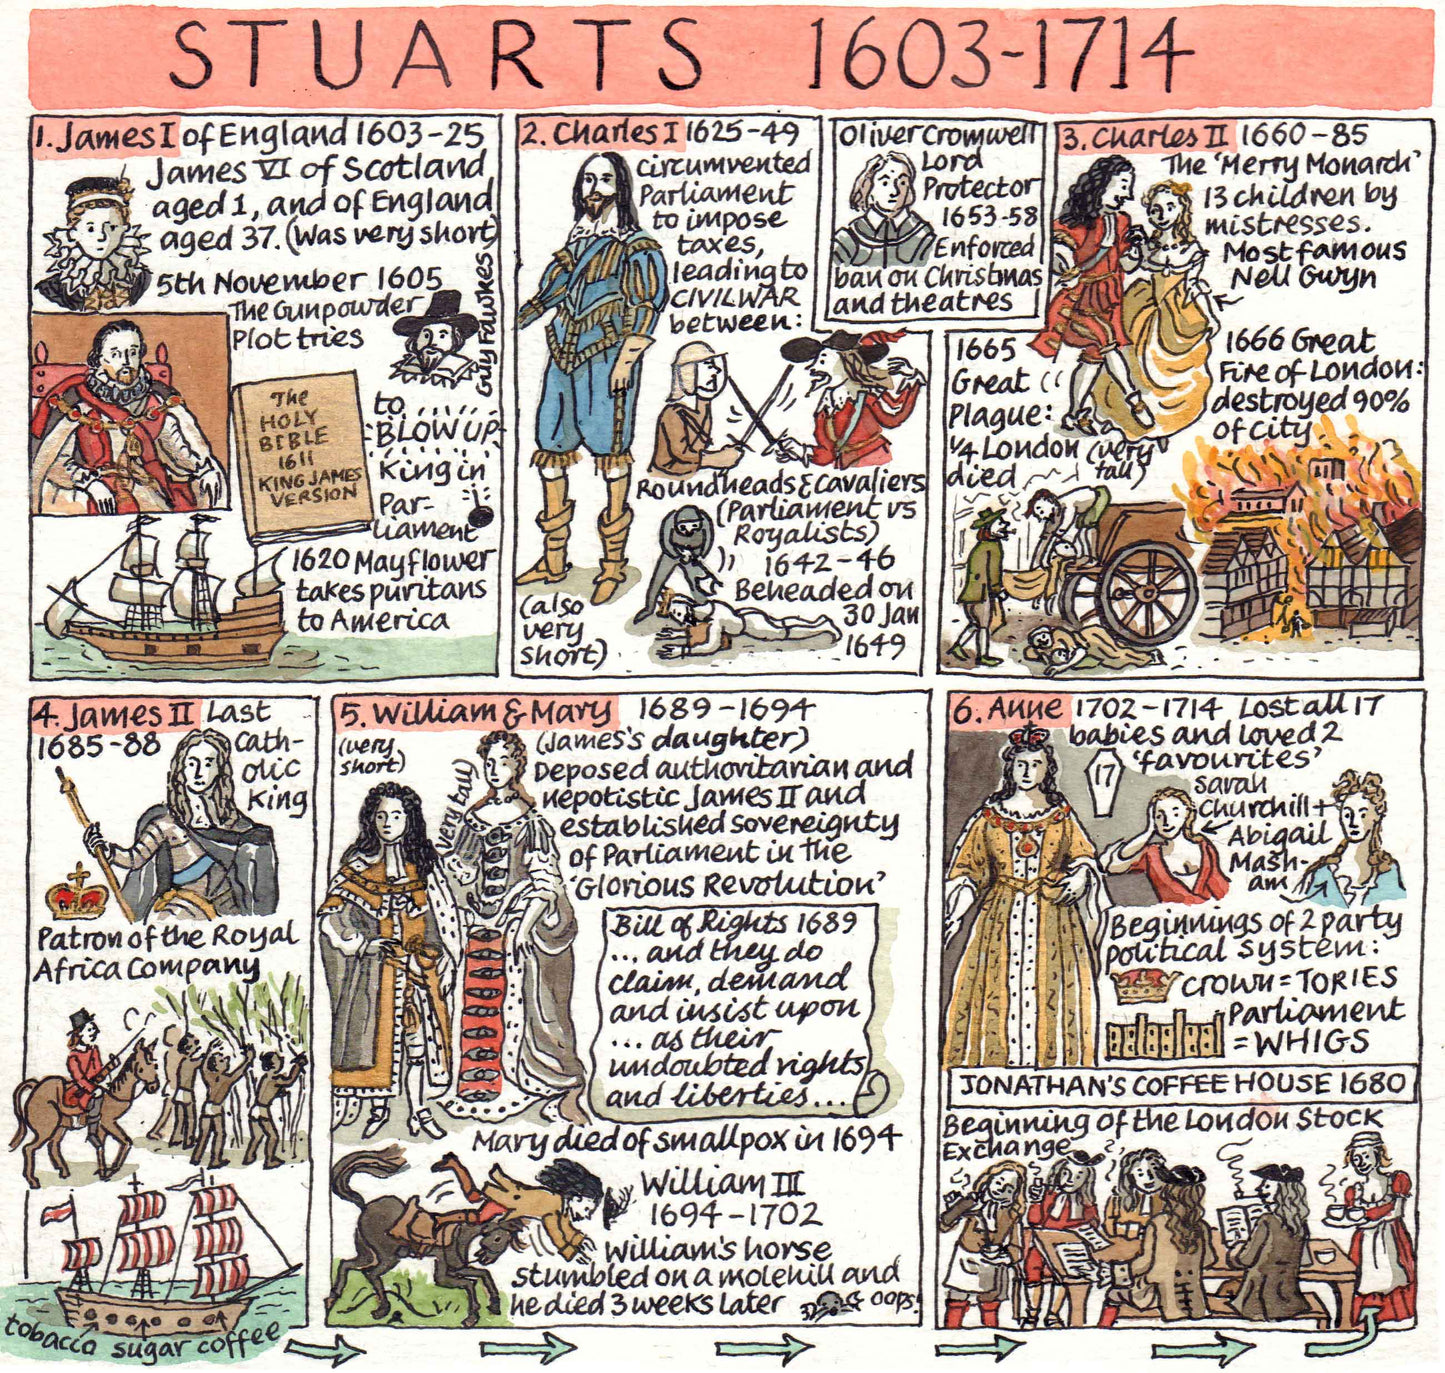 STUARTS 1603-1714
1. James I of England 1603-25
James VI of Scotland
aged 1, and of England
aged 37. (Was very short)
5th November 1605
The Gunpowder
Plot tries
Guy Fawkes
to
BLOW UP
King in
Par-
liament
The
HOLY
BIBLE
1611
KING JAMES
VERSION
1620 Mayflower
takes puritans
to America
2. Charles I 1625-49
circumvented
Parliament
to impose
taxes,
leading to
CIVIL WAR
between:
Roundheads & Cavaliers
(Parliament vs
Royalists)
1642-46
Beheaded on
30 Jan
1649
(also
very
short)
Oliver Cromwell
Lord
Protector
1653-58
Enforced
ban on Christmas
and theatres
3. Charles II 1660-85
The 'Merry Monarch'
13 children by
mistresses.
Most famous
Nell Gwyn
1665
Great
Plague:
1/4 London
died
(very
tall)
1666 Great
Fire of London:
destroyed 90%
of city
4. James II Last
1685-88 Cath-
olic
King
Patron of the Royal
Africa Company
tobacco sugar coffee
5. William & Mary 1689-1694
(very
short)
very tall)
(James's daughter)
Deposed authoritarian and
nepotistic James II and
established sovereignty
of Parliament in the
'Glorious Revolution'
Bill of Rights 1689
... and they do
claim, demand
and insist upon
... as their
undoubted rights
and liberties...
Mary died of smallpox in 1694
William III
1694-1702
William's horse
stumbled on a molehill and
he died 3 weeks later
oops!
6. Anne 1702-1714 Lost all 17
babies and loved 2
'favourites'
17
Sarah
Churchill +
Abigail
Mash-
am
Beginnings of 2 party
political system:
crown = TORIES
Parliament
= WHIGS
JONATHAN'S COFFEE HOUSE 1680
Beginning of the London Stock
Exchange